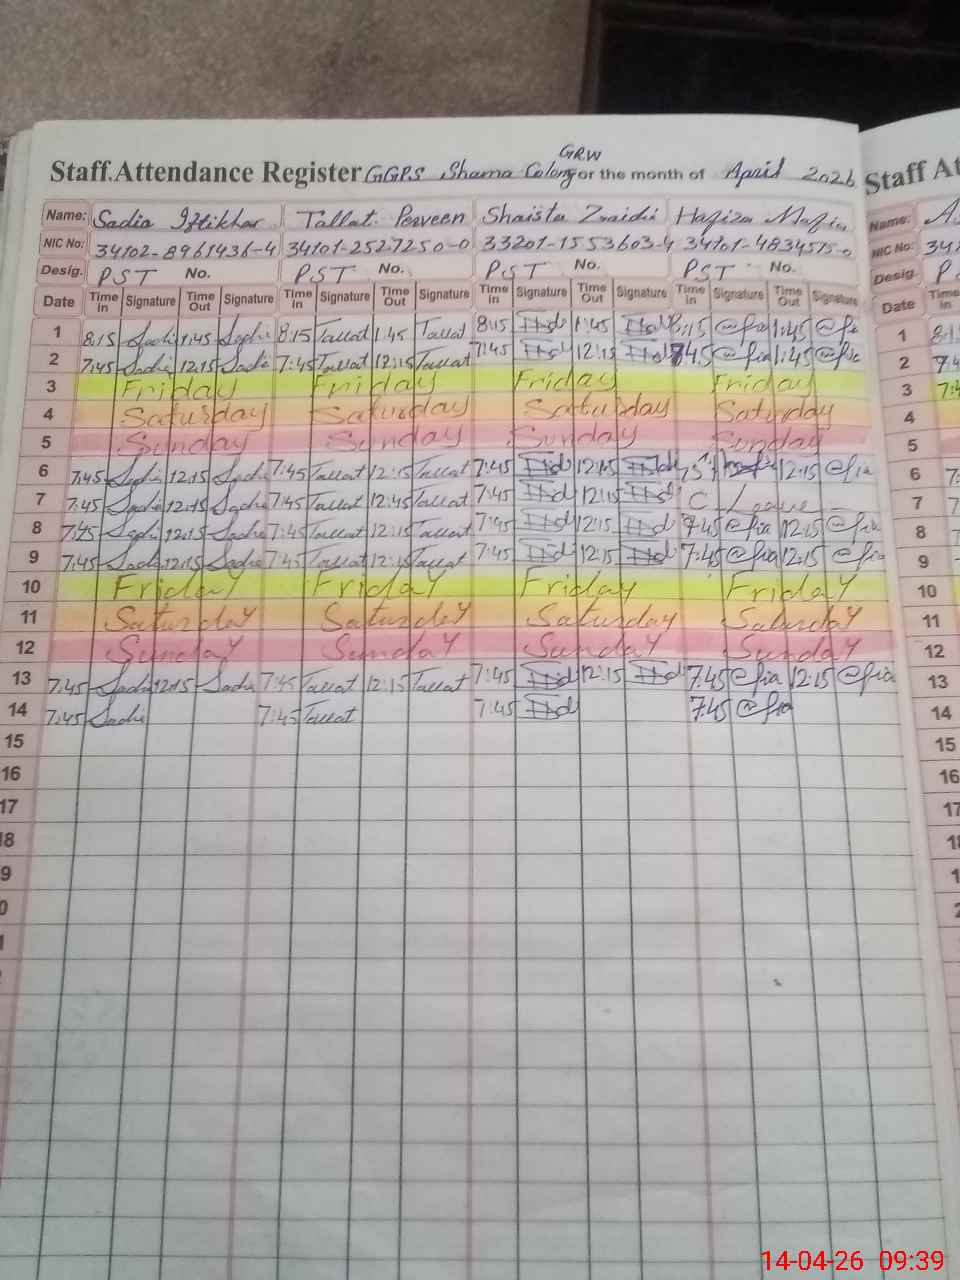 GRW
Staff Attendance Register GGPS Shama Colony for the month of April 2026 Staff At
Name: Sadia Iftikhar Tallat Perveen Shaista Zaidi Hafiza Name: A
NIC No: 34102-8961436-4 34101-2527250-0 33201-1553603-4 34101-4834515-0 NIC No: 34
Desig. PST No. PST No. PST No. PST No. Desig. P
Date Time In Signature Time Out Signature Time In Signature Time Out Signature Time In Signature Time Out Signature Time In Signature Time Out Signature Date Time In
1 8:15 Sadia 1:45 Sadia 8:15 Tallat 1:45 Tallat 8:15 1:45 8:15 1:45 1 8:1
2 7:45 Sadia 12:15 Sadia 7:45 Tallat 12:15 Tallat 7:45 12:15 7:45 1:45 2 7:4
3 Friday Friday Friday Friday 3 7:4
4 Saturday Saturday Saturday Saturday 4
5 Sunday Sunday Sunday Sunday 5
6 7:45 Sadia 12:15 Sadia 7:45 Tallat 12:15 Tallat 7:45 12:15 12:15 6 7:
7 7:45 Sadia 12:15 Sadia 7:45 Tallat 12:45 Tallat 7:45 12:15 C Leave 7 7
8 7:45 Sadia 12:15 Sadia 7:45 Tallat 12:15 Tallat 7:45 12:15 7:45 12:15 8 7
9 7:45 Sadia 12:15 Sadia 7:45 Tallat 12:15 Tallat 7:45 12:15 7:45 12:15 9 7
10 Friday Friday Friday Friday 10
11 Saturday Saturday Saturday Saturday 11
12 Sunday Sunday Sunday Sunday 12
13 7:45 Sadia 12:15 Sadia 7:45 Tallat 12:15 Tallat 7:45 12:15 7:45 12:15 13
14 7:45 Sadia 7:45 Tallat 7:45 7:45 14
15 15
16 16
17 17
18 18
9 1
0 2
1
14-04-26 09:39